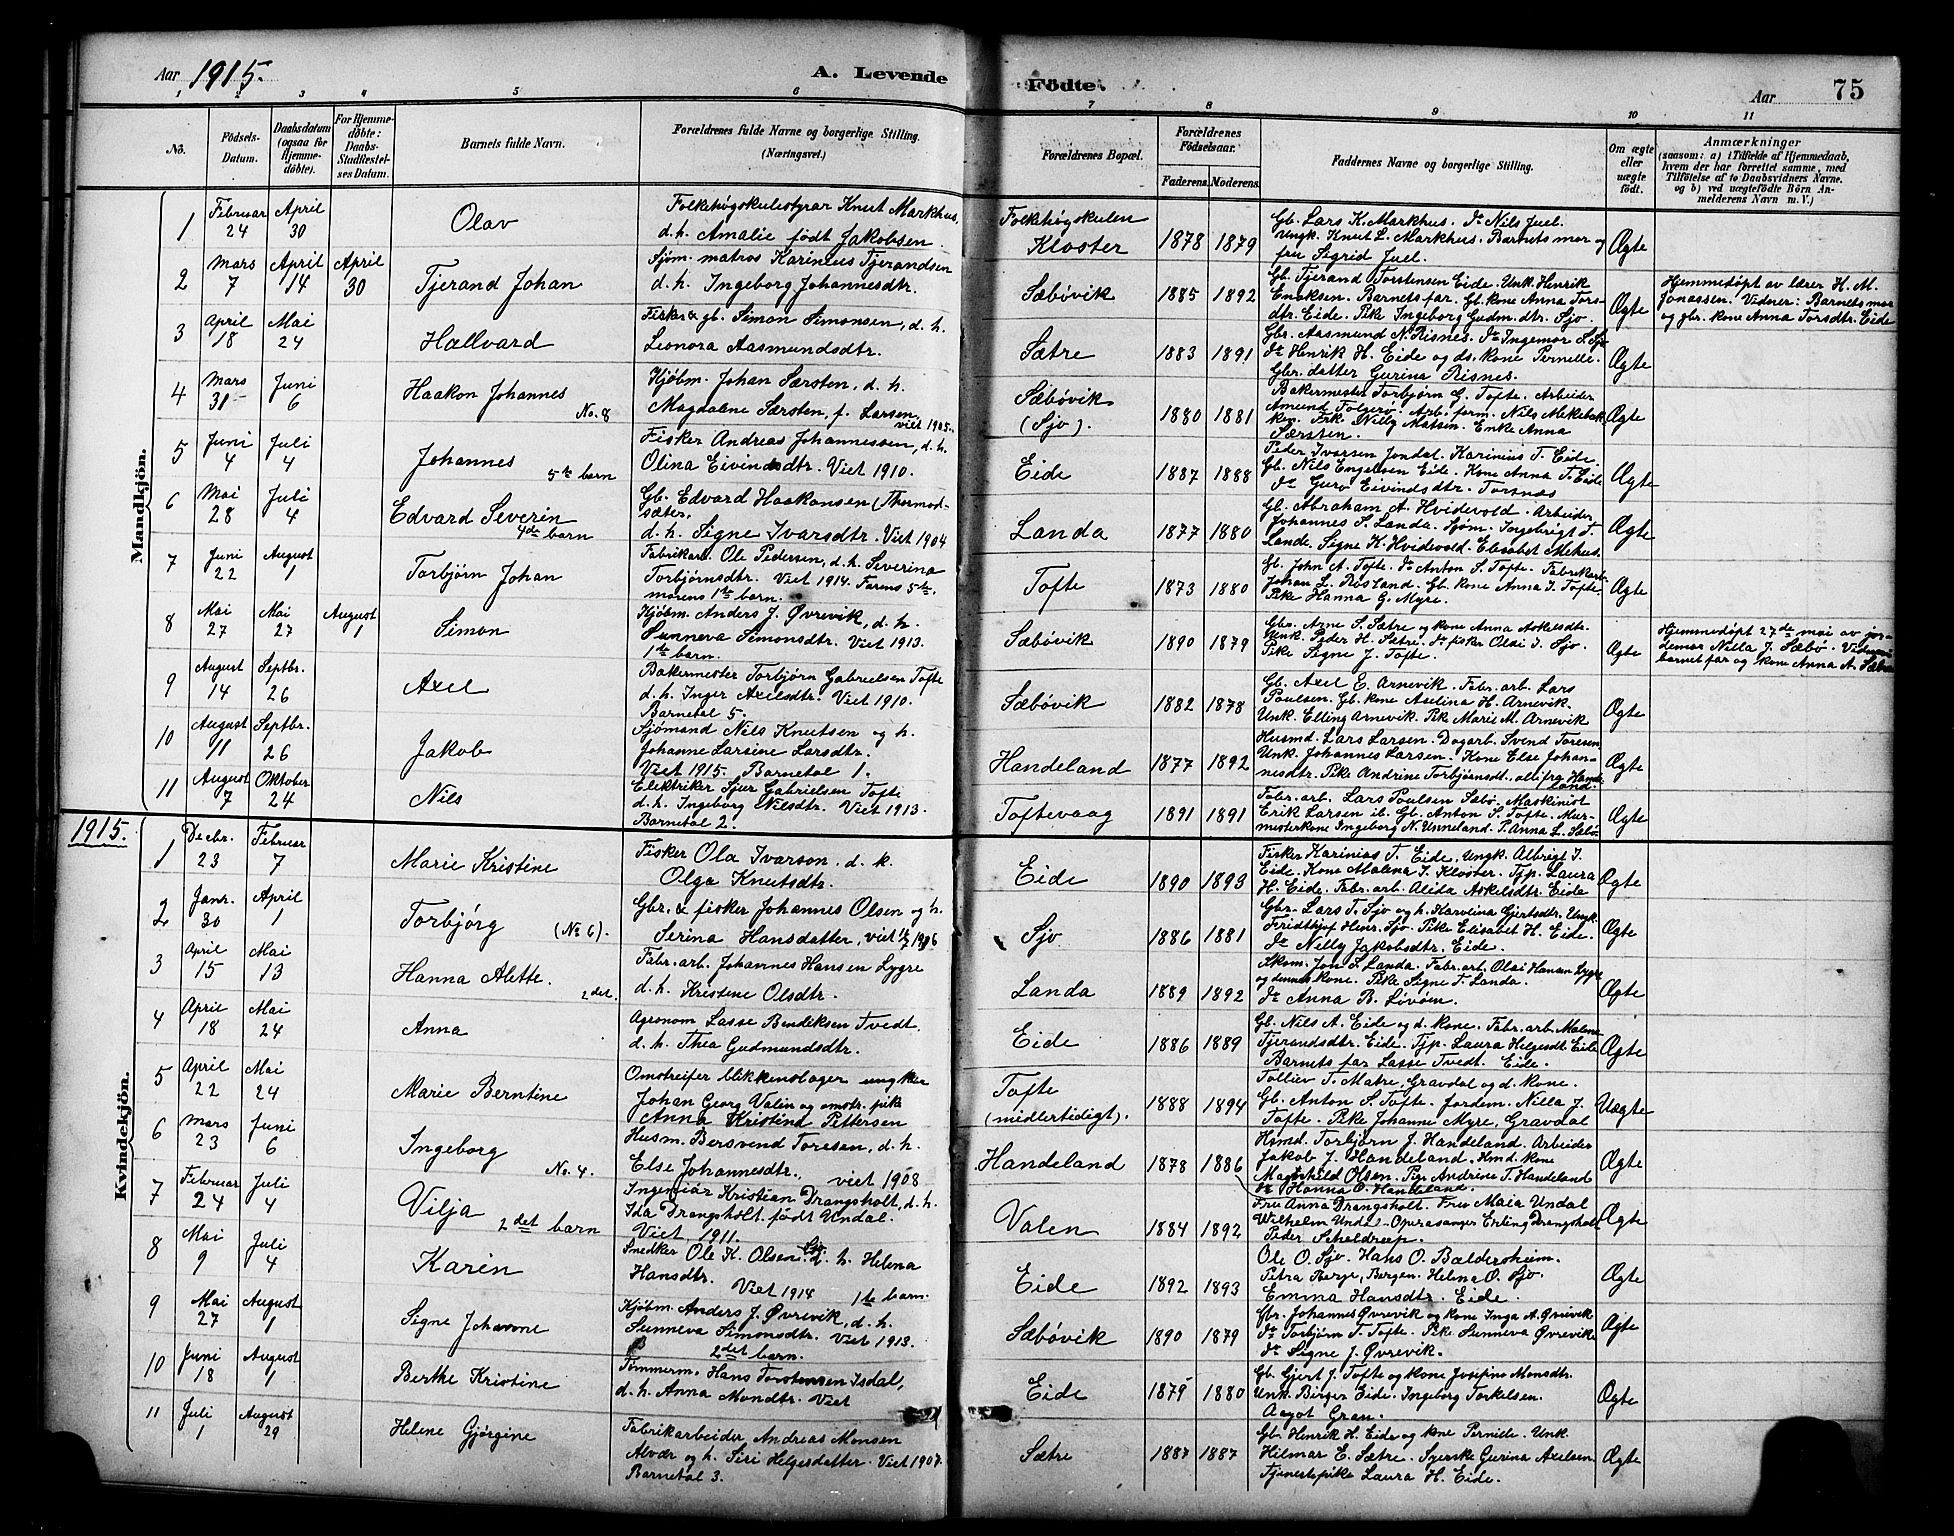 Aar 1915. A. Levende Födte. Aar 75
1 2 3 4 5 6 7 8 9 10 11
No. Födsels-Datum. Daabsdatum (ogsaa for Hjemmedöbte). For Hjemmedöbte: Daabs-Stadfæstelses Datum. Barnets fulde Navn. Forældrenes fulde Navne og borgerlige Stilling. (Næringsvei.) Forældrenes Bopæl. Forældrenes Födselsaar. Faderens. Moderens. Faddernes Navne og borgerlige Stilling. Om ægte eller uægte födt. Anmærkninger (saasom: a) i Tilfælde af Hjemmedaab, hvem der har forrettet samme, med Tilföielse af to Daabsvidners Navne. og b) ved uægtefödte Börn Anmelderens Navn m. V.)
Mandkjön.
1 Februar 24 April 30 Olav
Folkehøgskulestyrar Knut Markhus,
d.h. Amalie født Jakobsen.
Folkehøgskulen Kloster 1878 1879
Gb. Lars K. Markhus. Do Nils Juel.
Ungk. Knut L. Markhus. Barnets mor og
fru Sigrid Juel.
Ægte
2 Mars 7 April 14 April 30 Tjerand Johan
Sjøm. matros Karinius Tjerandsen
d.h. Ingeborg Johannesdtr.
Sæbövik 1885 1892
Gb. Tjerand Torstensen Eide. Unk. Henrik
Enoksen. Barnets far. Gb. kone Anna Tors-
dtr. Eide. Pike Ingeborg Gudm.dtr. Sjo.
Ægte
Hjemmedøpt av lærer H. M.
Jonassen. Vidner: Barnets mor
og gbr. kone Anna Torsdtr. Eide
3 April 18 Mai 24 Hallvard
Fisker & gb. Simon Simonsen, d.h.
Leonora Aasmundsdtr.
Sætre 1883 1891
Gbr. Aasmund N. Risnes. Do Ingemor S. Sjo
Do Henrik H. Eide og ds. kone Pernille.
Gbr. datter Gurina Risnes.
Ægte
4 Mars 31 Juni 6 Haakon Johannes No. 8
Kjöbm. Johan Særsten, d.h.
Magdalne Særsten, f. Larsen,
viet 1905.
Sæbövik (Sjo). 1880 1881
Bakermester Torbjørn G. Tofte. Arbeider
Amund Folgerø. Arb. form. Nils
Frk. Nelly Matsen. Enke Anna
Særsten.
Ægte
5 Juni 4 Juli 4 Johannes 5te barn
Fisker Andreas Johannessen, d.h.
Olina Eivindsdtr. Viet 1910.
Eide 1887 1888
Peder Ivarsen Jondal. Karinius T. Eide.
Gb. Nils Engelsen Eide. Kone Anna T. Eide
Do Guro Eivindsdtr. Torsnæs
Ægte
6 Mai 28 Juli 4 Edvard Severin 4de barn
Gb. Edvard Haakonsen (Thermod-
sæter,
d.h. Signe Ivarsdtr. Viet 1904
Landa 1877 1880
Gb. Abraham A. Hvidevold. Arbeider
Johannes S. Landa. Sjøm. Ingebrigt T.
Lande. Signe K. Hvidevold. Elisabet Mehus.
Ægte
7 Juni 22 August 1 Torbjørn Johan
Fabrikarb. Ole Pedersen, d.h. Severina
Torbjørnsdtr. Viet 1914. Farens 5te.
morens 1te barn.
Tofte 1873 1880
Gb. John A. Tofte. Do Anton S. Tofte. Fabrikarb.
Johan L. Røsland. Gb. kone Anna I. Tofte.
Pike Hanna G. Myre.
Ægte
8 Mai 27 Mai 27 August 1 Simon
Kjöbm. Anders J. Øvrevik, d.h.
Sunneva Simonsdtr. Viet 1913.
1te barn.
Sæbövik 1890 1879
Gbr. Arne S. Sætre og kone Anna Askelsdtr.
Unk. Peder H. Sætre. Do fisker Olai I. Sjo.
Pike Signe J. Tofte.
Ægte
Hjemmedøpt 27de mai av jor-
demor Nilla J. Sæbø.
barnet far og kone Anna A. Sæbø
9 August 14 Septbr. 26 Axel
Bakermester Torbjörn Gabrielsen Tofte
d.h. Inger Axelsdtr. Viet 1910.
Barnetal 5.
Sæbövik 1882 1878
Gb. Axel E. Arnevik. Fabr. arb. Lars
Poulsen. Gb. kone Axelina H. Arnevik.
Unk. Elling Arnevik. Pike Marie M. Arnevik
Ægte
10 August 11 Septbr. 26 Jakob
Sjömand Nils Knutsen og h.
Johanne Larsine Larsdtr.
Viet 1915. Barnetal 1.
Handeland 1877 1892
Husmd. Lars Larsen. Dagarb. Svend Toresen
Unk. Johannes Larsen. Kone Else Johan-
nesdtr. Pike Andrine Torbjørnsdt. alle fra Hande-
land.
Ægte
11 August 7 Oktober 24 Nils
Elektriker Sjur Gabrielsen Tofte
d.h. Ingeborg Nilsdtr. Viet 1913.
Barnetal 2.
Toftevaag 1891 1891
Fabr. arb. Lars Poulsen Sæbø. Maskinist
Erik Larsen ib. Gb. Anton S. Tofte. Mur-
mesterkone Ingeborg N. Unneland. P. Anna L. Sæbø.
Ægte
1915.
Kvindekjön.
1 Decbr. 23 Februar 7 Marie Kristine
Fisker Ola Ivarson. d.k.
Olga Knutsdtr.
Eide 1890 1893
Fisker Karinius T. Eide, Ungk. Albrigt I.
Eide. Kone Malena I. Kloster. Tjp. Laura
H. Eide. Fabr. arb. Alida Askelsdtr. Eide
Ægte
2 Janr. 30 April 1 Torbjørg (No 6).
Gbr. & fisker Johannes Olsen og h.
Serina Hansdatter, viet 1906
Sjo 1886 1881
Gbr. Lars T. Sjo og h. Karolina Gjertsdtr. Ungk.
Fridthjof Henr. Sjo. Pike Elisabet H. Eide.
Do Nilly Jakobsdtr. Eide.
Ægte
3 April 15 Mai 13 Hanna Alette. 2det.
Fabr. arb. Johannes Hansen Lygre
d.h. Kristine Olsdtr.
Landa 1889 1892
Skom. Jon S. Landa. Fabr. arb. Olai Hansen Lygre
og dennes kone. Pike Signe T. Landa.
Do Anna B. Løvøen.
Ægte
4 April 18 Mai 24 Anna
Agronom Lasse Bendiksen Tvedt,
d.h. Thea Gudmundsdtr.
Eide 1886 1889
Gb. Nils A. Eide og d. kone. Fabr. arb. Malene
Tjerandsdtr. Eide. Tjp. Laura Helgesdt. Eide
Barnets far Lasse Tvedt. Eide.
Ægte
5 April 22 Mai 24 Marie Berntine
Omstreifer blikkenslager ungkar
Johan Georg Valen og omstr. pike
Anna Kristine Pettersen
Tofte (midlertidigt). 1888 1894
Tolliev T. Matre, Gravdal og d. kone.
Gb. Anton S. Tofte. Jordem. Nilla J.
Tofte. Pike Johanne Myre, Gravdal
Uægte
6 Mars 23 Juni 6 Ingeborg No. 4.
Husm. Bersvend Toresen, d.h.
Else Johannesdtr. viet 1908
Handeland 1878 1886
Hsmd. Torbjørn J. Handeland. Arbeider
Jakob J. Handeland. Hmd. kone
Magnhild Olsen. Pige Andrine T. Handeland
Do Hanna O. Handeland.
Ægte
7 Februar 24 Juli 4 Vilja 2det barn
Ingeniør Kristian Drangsholt, d.h.
Ida Drangsholt født Undal.
Viet 1911.
Valen 1884 1892
Fru Anna Drangsholt. Fru Maia Undal
Wilhelm Undal. Operasanger Erling Drangsholt
Peder Scheldrup.
Ægte
8 Mai 9 Juli 4 Karen
Snedker Ole K. Olsen Sjo d. h. Helena
Hansdtr. Viet 1914 1te barn.
Eide 1892 1893
Ole O. Sjo. Hans O. Bældersheim.
Petra Berge, Bergen. Helena O. Sjo.
Emma Hansdtr. Eide.
Ægte
9 Mai 27 August 1 Signe Johanne
Kjöbm. Anders J. Øvrevik, d.h.
Sunneva Simonsdtr. Viet 1913.
2det barn.
Sæbövik 1890 1879
Gbr. Johannes Øvrevik og kone Inga A. Øvrevik
Do Torbjørn T. Tofte. Pike Sunneva Øvrevik
Do Signe J. Øvrevik.
Ægte
10 Juni 18 August 1 Berthe Kristine
Tømmerm. Hans Torstensen Isdal,
d.h. Anna Mondtr. Viet
Eide 1879 1880
Gb. Gjert J. Tofte og kone Josefine Monsdtr.
Unk. Birger Eide. Ingeborg Torkelsen.
Aagot Gran.
Ægte
11 Juli 1 August 29 Helene Gjørgine
Fabrikarbeider Andreas Monsen
Alvær og h. Siri Helgesdatter. Viet 1907.
Barnetal 3.
Sætre 1887 1887
Gb. Henrik H. Eide og kone Pernille. Unk
Hilmar E. Sætre. Syerske Gurina Axelsen
Tjenestepike Laura H. Eide.
Ægte